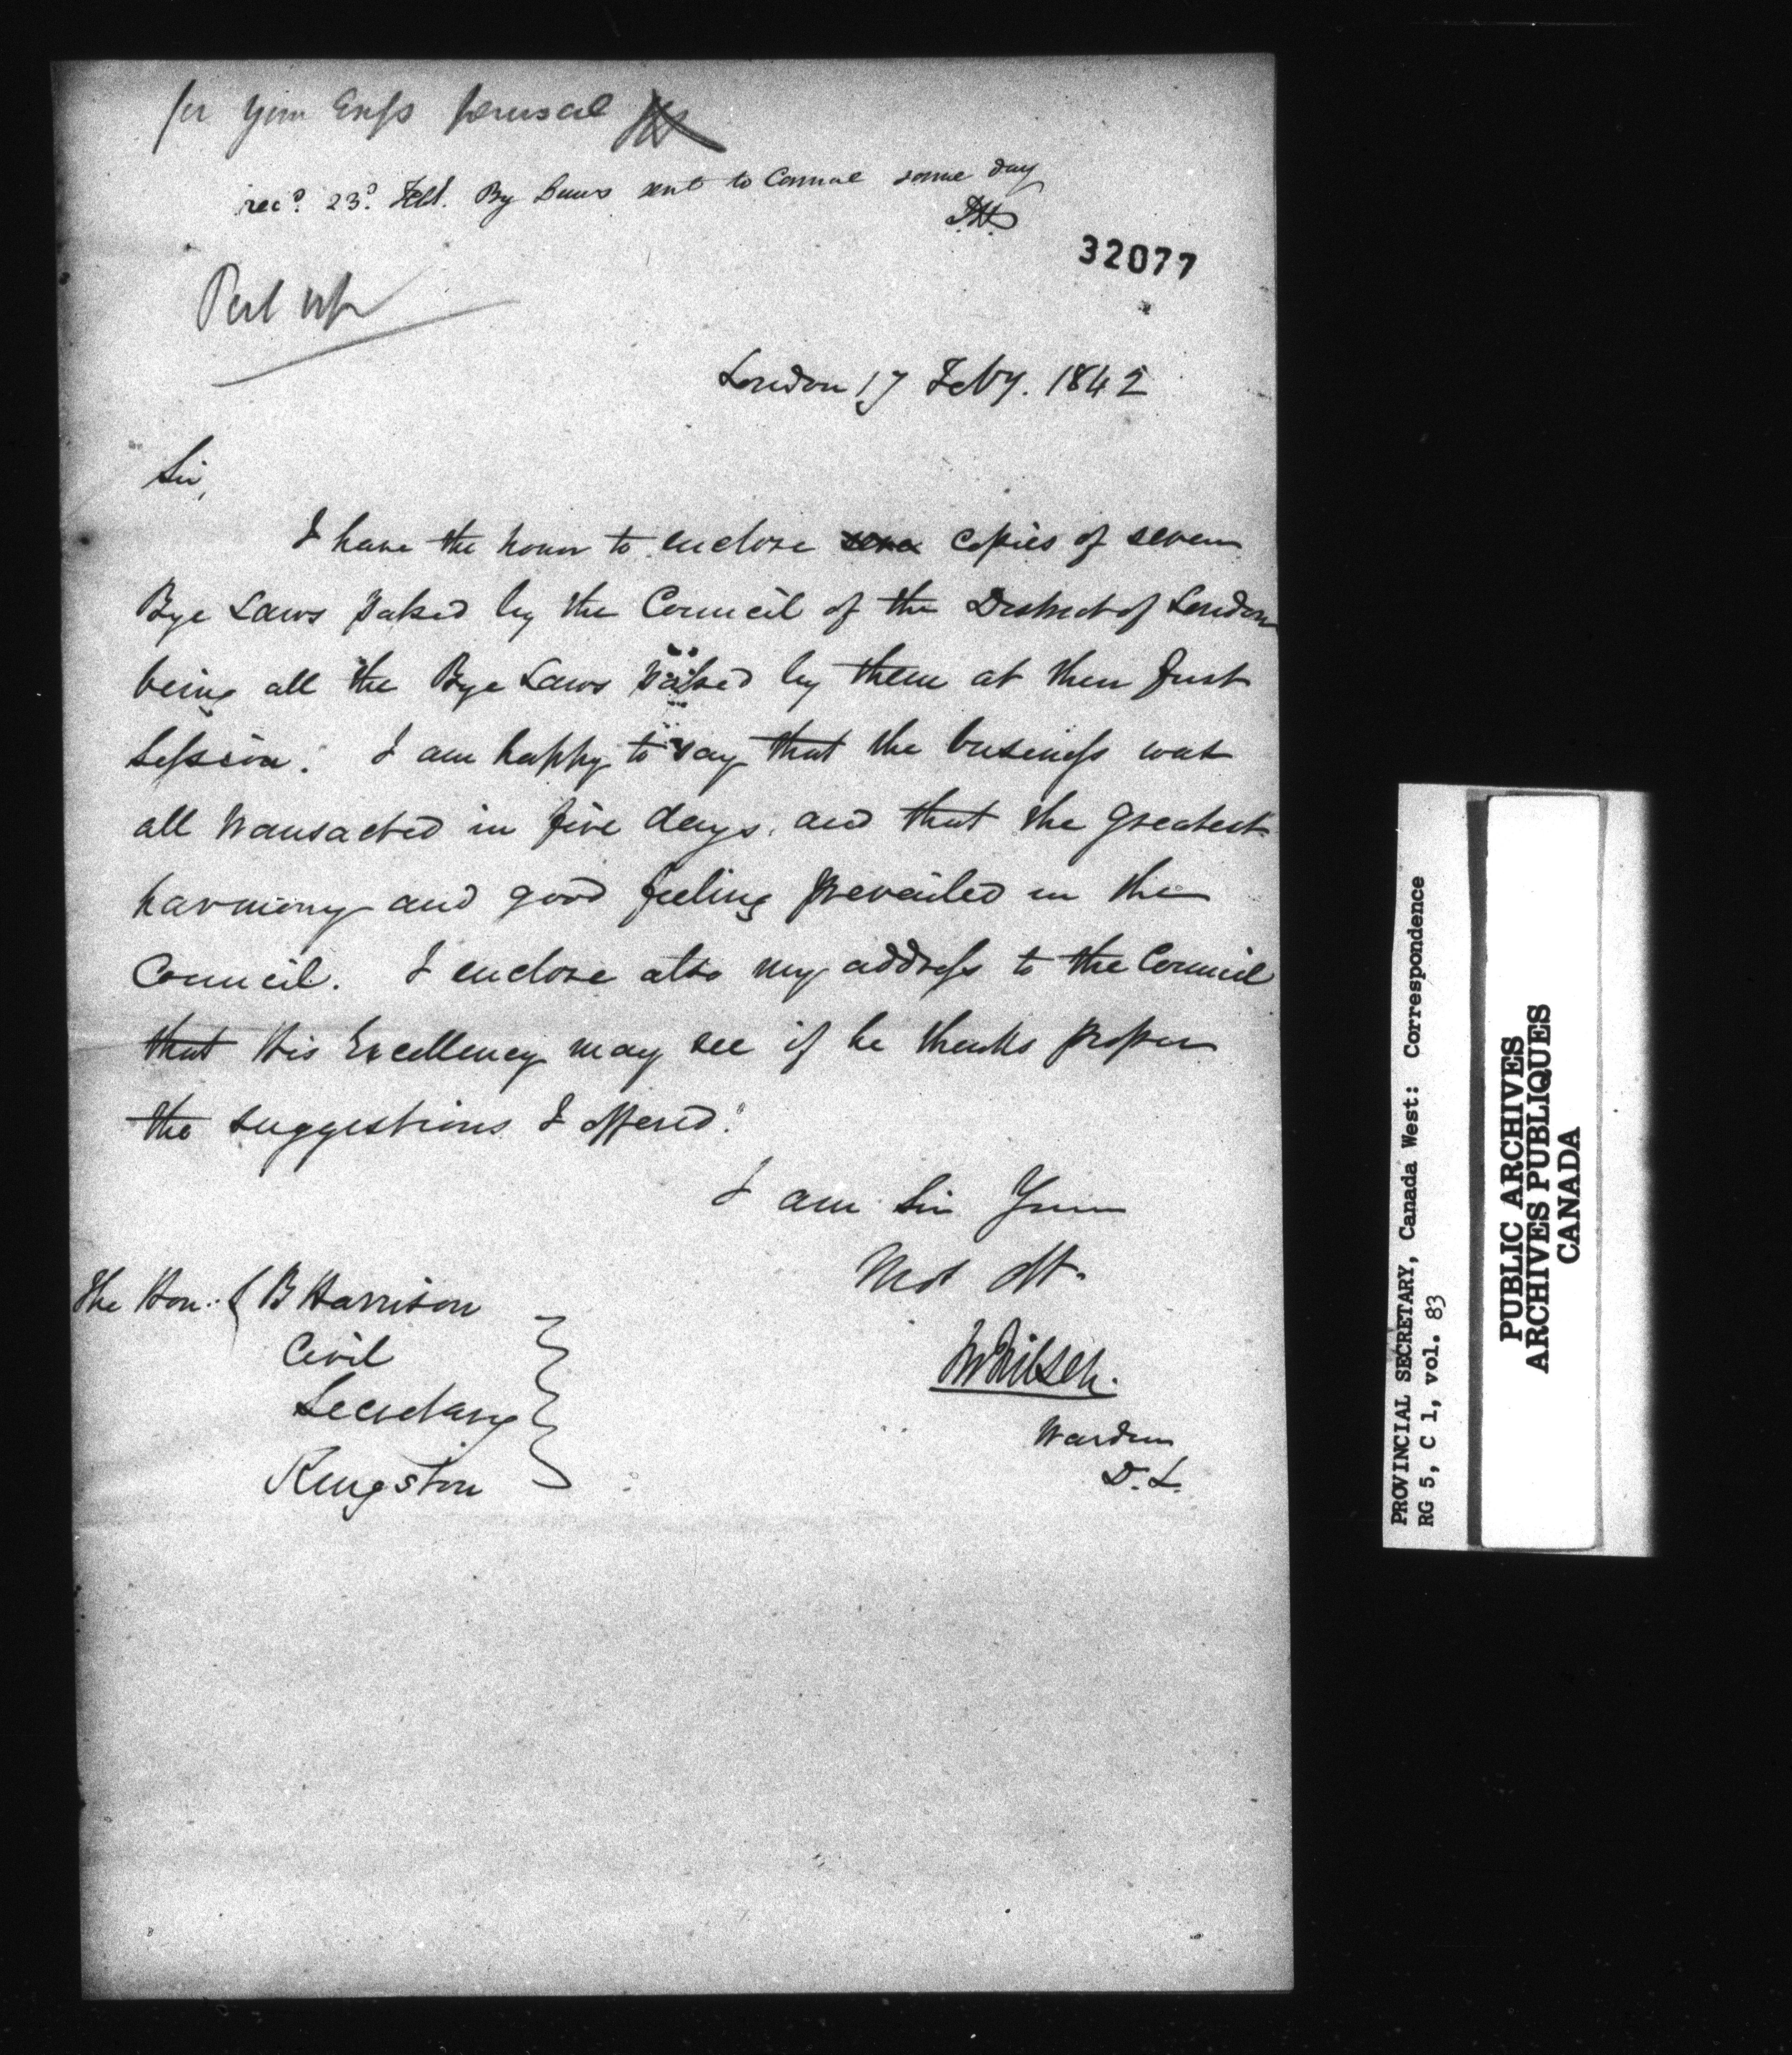 for your Excy's perusal
recd. 23d. Feby. By Laws sent to Council same day
32077
Put up
London 17 Feby. 1842
Sir,
I have the honor to enclose copies of seven
Bye Laws passed by the Council of the District of London
being all the Bye Laws passed by them at their first
Session. I am happy to say that the business was
all transacted in five days, and that the greatest
harmony and good feeling prevailed in the
Council. I enclose also my address to the Council
that His Excellency may see if he thinks proper
the suggestions I offered.
I am Sir Your
Mot Obt.
The Hon: B Harrison
Civil
Secretary
Kingston
Warden
D. L.
PROVINCIAL SECRETARY, Canada West: Correspondence
RG 5, C 1, vol. 83
PUBLIC ARCHIVES
ARCHIVES PUBLIQUES
CANADA